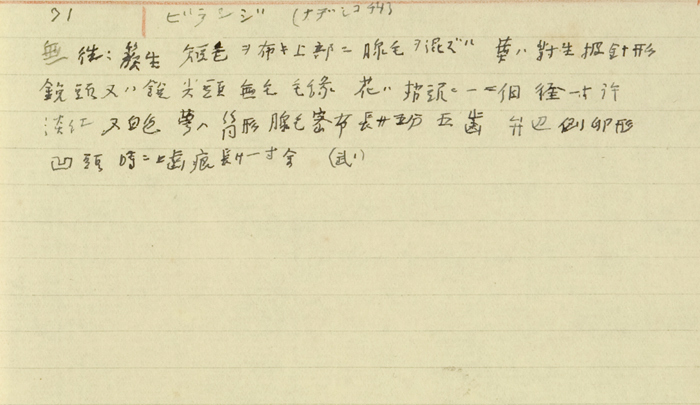 31 ビランジ (ナデシコ科)
無 従: 叢生 短毛ヲ布キ上部ニ腺毛ヲ混ズ 葉ハ對生披針形
鋭頭又ハ鋭尖頭無毛 毛縁 花ハ梢頭ニ一二個 径一寸許
淡紅 又白色 萼ハ筒形腺毛密布長サ五分 五歯 弁辺倒卵形
凹頭 時ニ歯痕 長サ一寸余 (武)